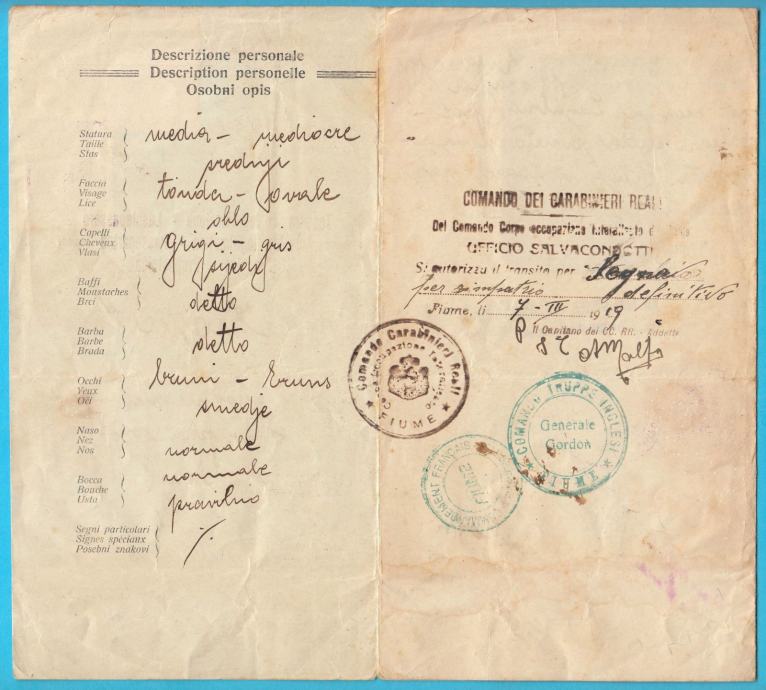 Descrizione personale
Description personelle
Osobni opis
Statura
Taille
Stas
media - mediocre
srednji
Faccia
Visage
Lice
tonda - ovale
oblo
Capelli
Cheveux
Vlasi
grigi - gris
sijedi
Baffi
Moustaches
Brci
detto
Barba
Barbe
Brada
detto
Occhi
Yeux
Oči
bruni - bruns
smedje
Naso
Nez
Nos
normale
Bocca
Bouche
Usta
normale
pravilno
Segni particolari
Signes spéciaux
Posebni znakovi
COMANDO DEI CARABINIERI REALI
Del Comando Corpo occupazione Interalleato
UFFICIO SALVACONDOTTI
Si autorizza il transito per
per rimpatrio definitivo
Fiume, li 7 - IV 1919
Il Capitano dei CC. RR. - Addetto
Comando Carabinieri Reali
FIUME
COMANDO TRUPPE INGLESI
Generale
Gordon
FIUME
FRANÇAIS
FIUME